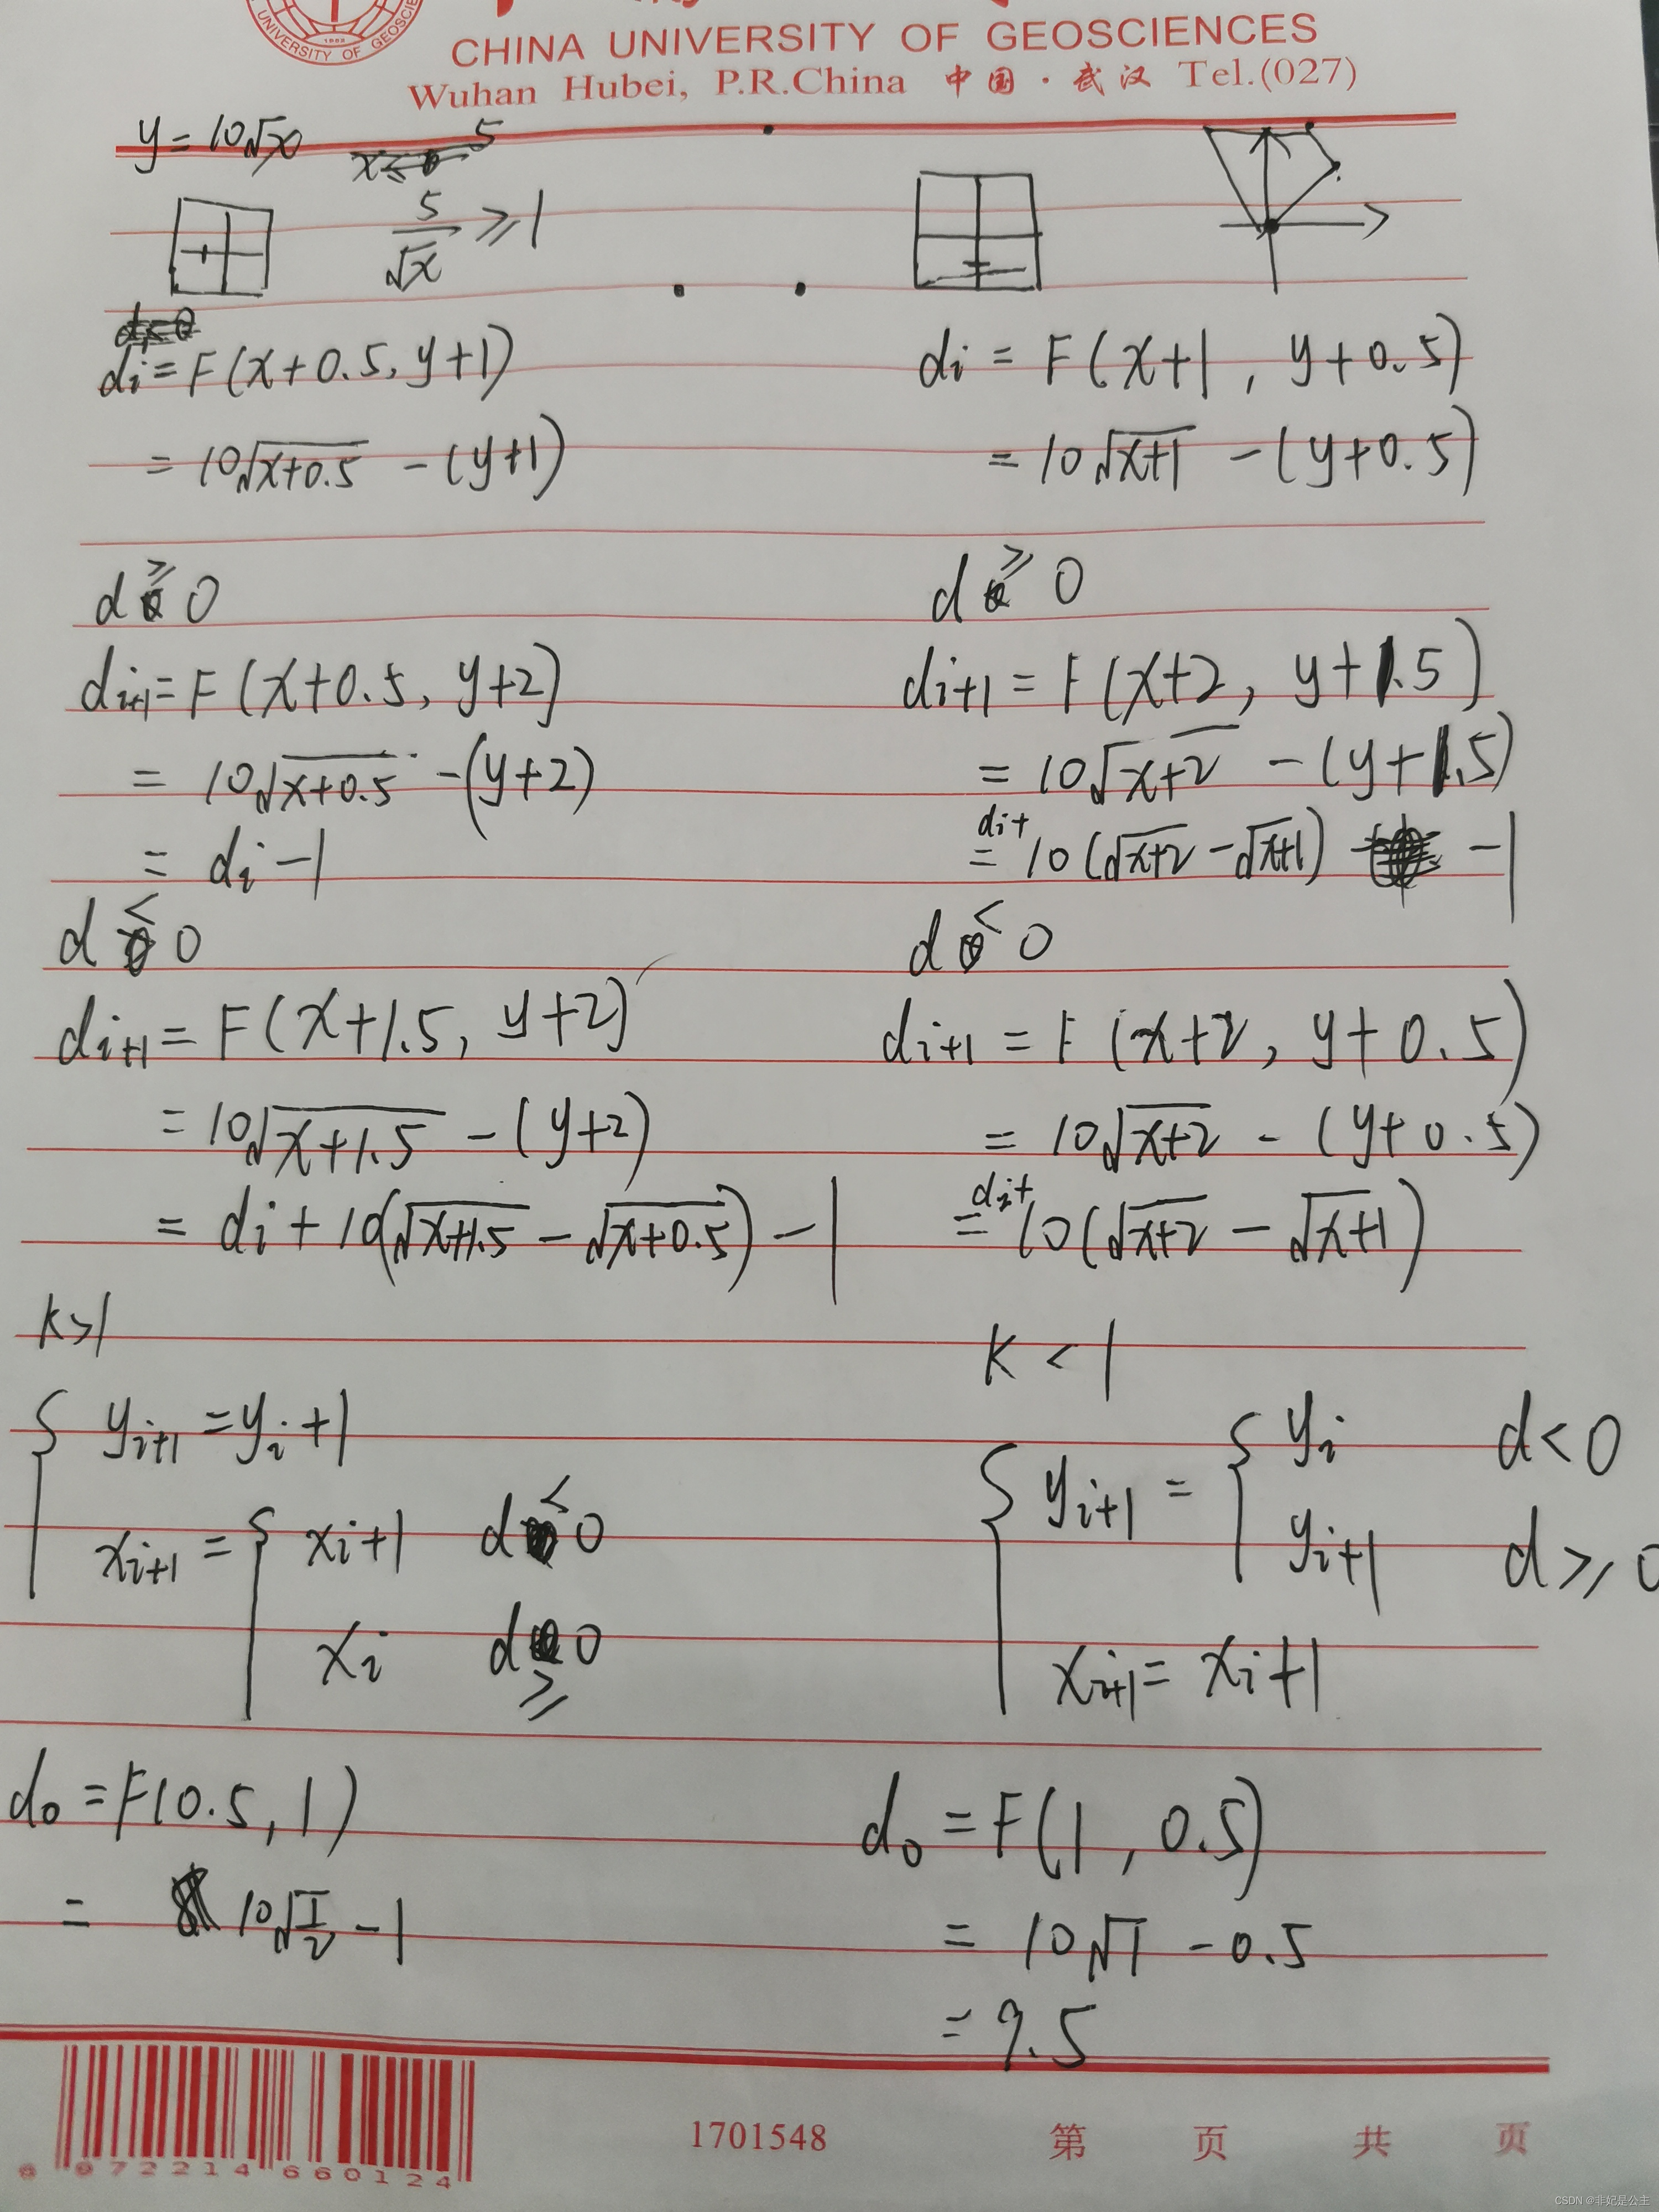 UNIVERSITY OF GEOSC
1952
CHINA UNIVERSITY OF GEOSCIENCES
Wuhan Hubei, P.R.China 中国·武汉 Tel.(027)
y = 10√x
x ≤ 5
5/√x ≥ 1
di = F(x+0.5, y+1)
= 10√(x+0.5) - (y+1)
d ≥ 0
di+1 = F(x+0.5, y+2)
= 10√(x+0.5) - (y+2)
= di - 1
d < 0
di+1 = F(x+1.5, y+2)
= 10√(x+1.5) - (y+2)
= di + 10(√(x+1.5) - √(x+0.5)) - 1
k>1
yi+1 = yi+1
xi+1 = { xi+1 d < 0
xi d ≥ 0
d0 = F(0.5, 1)
= 10√(1/2) - 1
di = F(x+1, y+0.5)
= 10√(x+1) - (y+0.5)
d ≥ 0
di+1 = F(x+2, y+1.5)
= 10√(x+2) - (y+1.5)
= di+ 10(√(x+2) - √(x+1)) - 1
d < 0
di+1 = F(x+2, y+0.5)
= 10√(x+2) - (y+0.5)
= di+ 10(√(x+2) - √(x+1))
K < 1
yi+1 = { yi d<0
yi+1 d≥0
xi+1 = xi+1
d0 = F(1, 0.5)
= 10√1 - 0.5
= 9.5
072214 660124
1701548
第 页 共 页
CSDN @非妃是公主